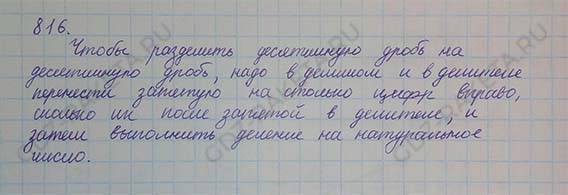 816.
Чтобы разделить десятичную дробь на
десятичную дробь, надо в делимом и в делителе
перенести запятую на столько цифр вправо,
сколько их после запятой в делителе, и
затем выполнить деление на натуральное
число.